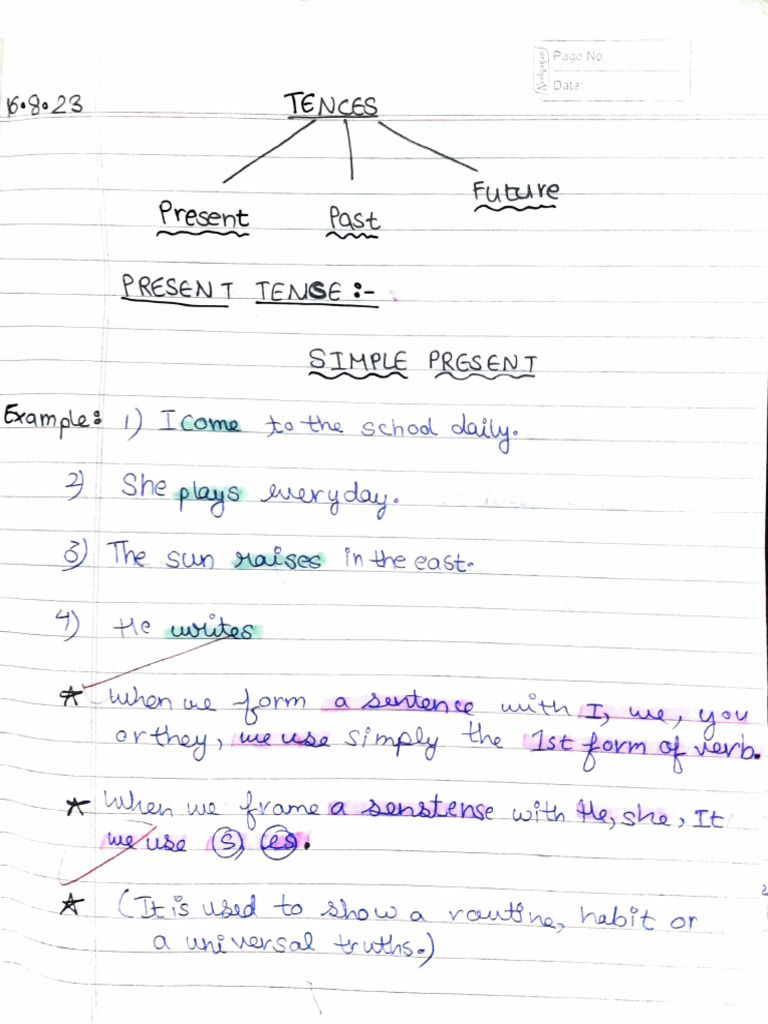 Neelgagan
Page No
Date:
16.8.23
TENCES
Present Past Future
PRESENT TENSE :-
SIMPLE PRESENT
Example: 1) I come to the school daily.
2) She plays everyday.
3) The sun raises in the east.
4) He writes
★ When we form a sentence with I, we, you
or they, we use simply the 1st form of verb.
★ When we frame a senstense with He, she, It
we use (s) (es).
★ (It is used to show a routine, habit or
a universal truths.)